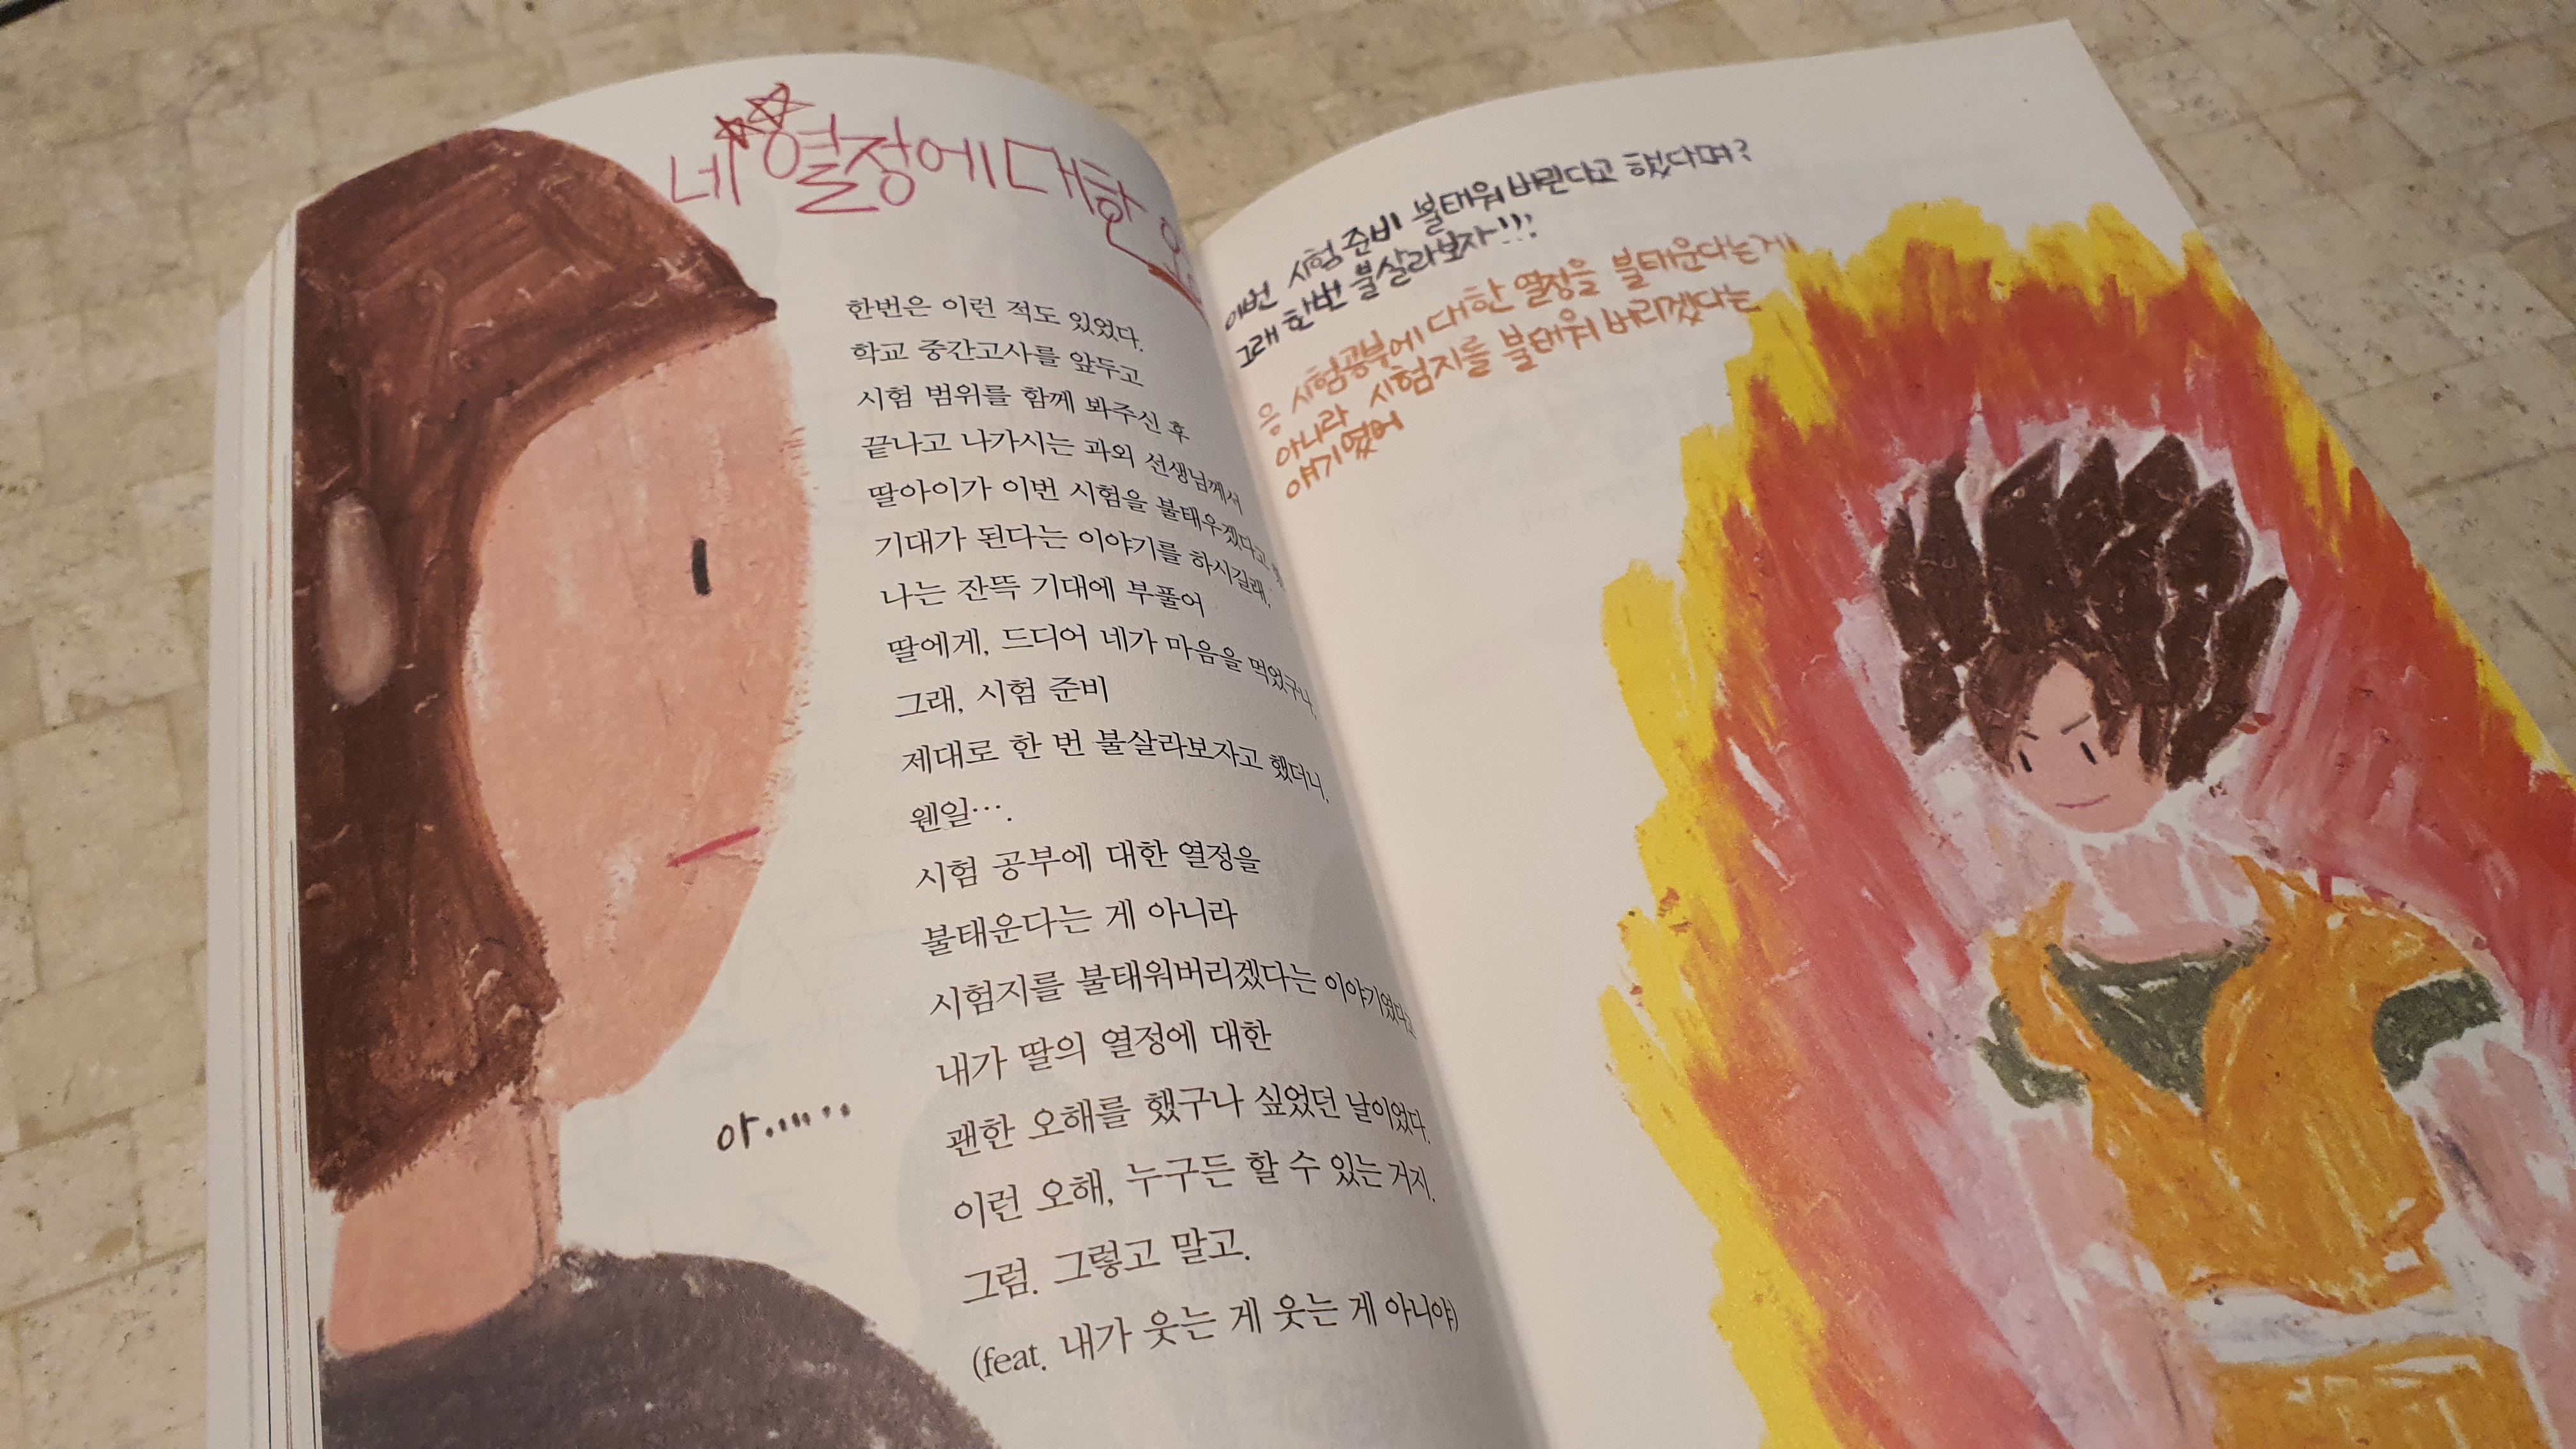 네 열정에 대한
한번은 이런 적도 있었다.
학교 중간고사를 앞두고
시험 범위를 함께 봐주신 후
끝나고 나가시는 과외 선생님께서
딸아이가 이번 시험을 불태우겠다고
기대가 된다는 이야기를 하시길래,
나는 잔뜩 기대에 부풀어
딸에게, 드디어 네가 마음을 먹었구나,
그래, 시험 준비
제대로 한 번 불살라보자고 했더니,
웬일….
시험 공부에 대한 열정을
불태운다는 게 아니라
시험지를 불태워버리겠다는 이야기였다고
내가 딸의 열정에 대한
괜한 오해를 했구나 싶었던 날이었다.
이런 오해, 누구든 할 수 있는 거지.
그럼. 그렇고 말고.
(feat. 내가 웃는 게 웃는 게 아니야)
아......
이번 시험 준비 불태워 버린다고 했다며?
그래 한번 불살라보자!!!
응 시험공부에 대한 열정을 불태운다는게
아니라 시험지를 불태워 버리겠다는
얘기였어